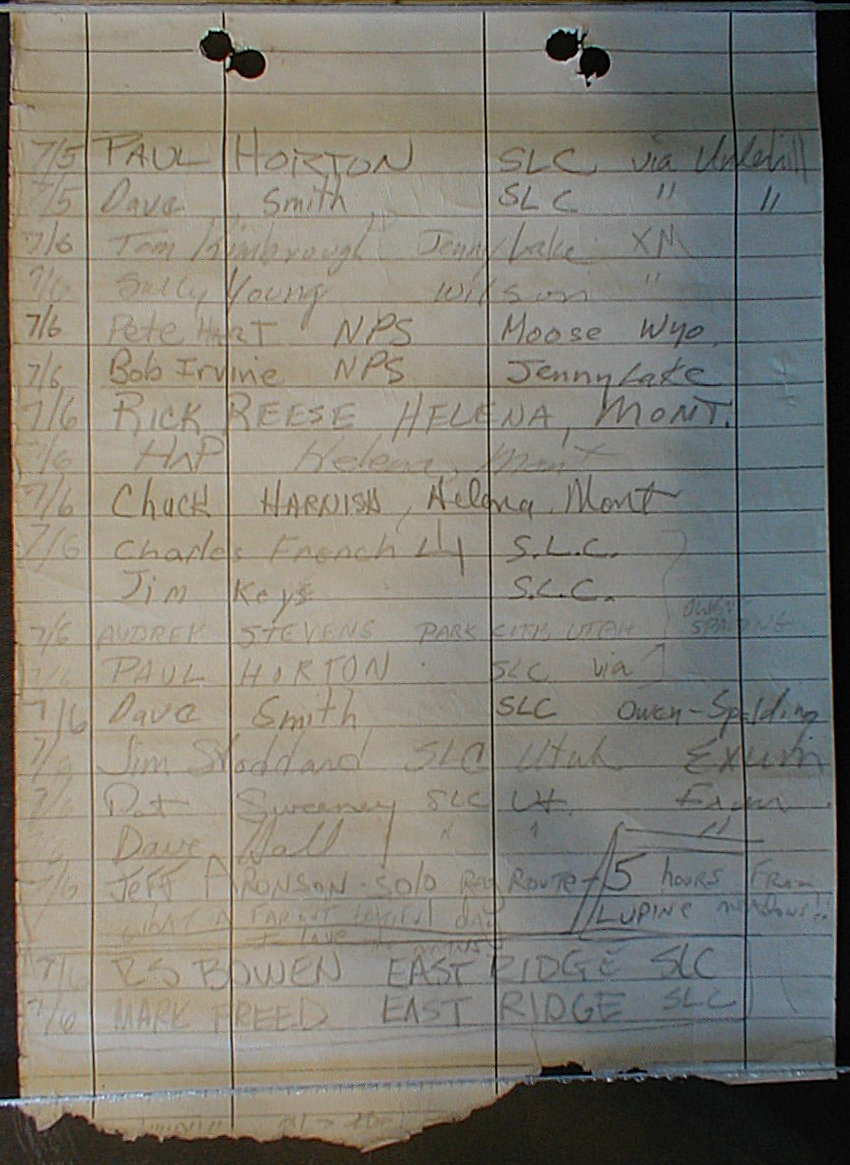 7/5 PAUL HORTON SLC via Underhill
7/5 Dave Smith SLC " "
7/6 Tom Kimbrough Jenny Lake XM
7/6 Sally Young Wilson "
7/6 Pete HART NPS Moose Wyo.
7/6 Bob Irvine NPS Jenny Lake
7/6 RICK REESE HELENA, MONT.
7/6 HAP Helena, Mont
7/6 Chuck HARNISH, Helena, Mont
7/6 Charles French S.L.C.
Jim Keys S.L.C.
OWEN
7/6 AUDREY STEVENS PARK CITY, UTAH SPALDING
7/6 PAUL HORTON SLC via
7/6 Dave Smith SLC Owen-Spalding
7/6 Jim Stoddard SLC Utah Exum
7/6 Pat Sweeney SLC Ut. Exum
Dave Hall " " "
7/6 Jeff ARONSON - Solo REG ROUTE - 5 hours From
WHAT A day LUPINE meadows!!
I love the
7/6 RS BOWEN EAST RIDGE SLC
7/6 MARK FREED EAST RIDGE SLC